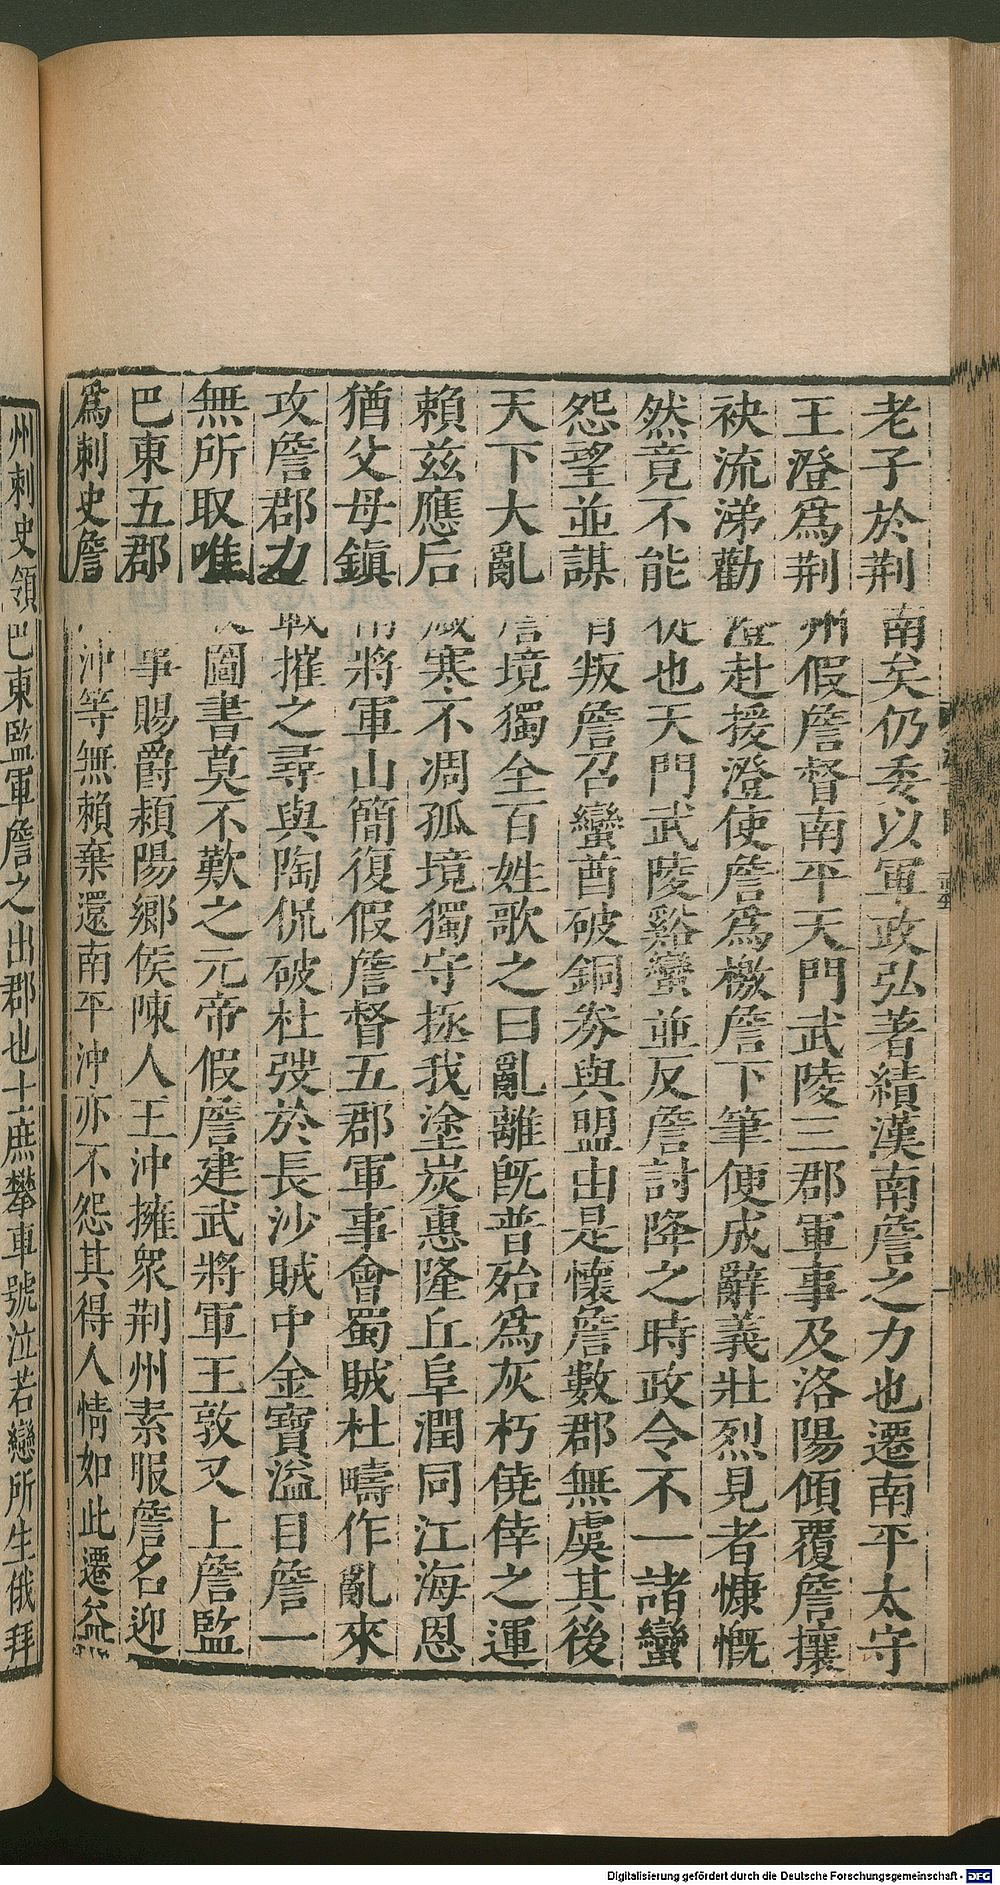 老子於荆南矣仍委以軍政弘著績漢南詹之力也遷南平太守
王澄爲荆州假詹督南平天門武陵三郡軍事及洛陽傾覆詹攘
袂流涕勸澄赴援澄使詹爲檄詹下筆便成辭義壯烈見者慷慨
然竟不能從也天門武陵谿蠻並反詹討降之時政令不一諸蠻
怨望並謀背叛詹召蠻酋破銅券與盟由是懷詹數郡無虞其後
天下大亂詹境獨全百姓歌之曰亂離既普殆爲灰朽僥倖之運
賴兹應后歲寒不凋孤境獨守拯我塗炭惠隆丘阜潤同江海恩
猶父母鎮南將軍山簡復假詹督五郡軍事會蜀賊杜疇作亂來
攻詹郡力戰摧之尋與陶侃破杜弢於長沙賊中金寶溢目詹一
無所取唯收圖書莫不歎之元帝假詹建武將軍王敦又上詹監
巴東五郡軍事賜爵潁陽鄉侯陳人王沖擁衆荆州素服詹名迎
爲刺史詹以沖等無賴棄還南平沖亦不怨其得人情如此遷益
州刺史領巴東監軍詹之出郡也士庶攀車號泣若戀所生俄拜
Digitalisierung gefördert durch die Deutsche Forschungsgemeinschaft - DFG